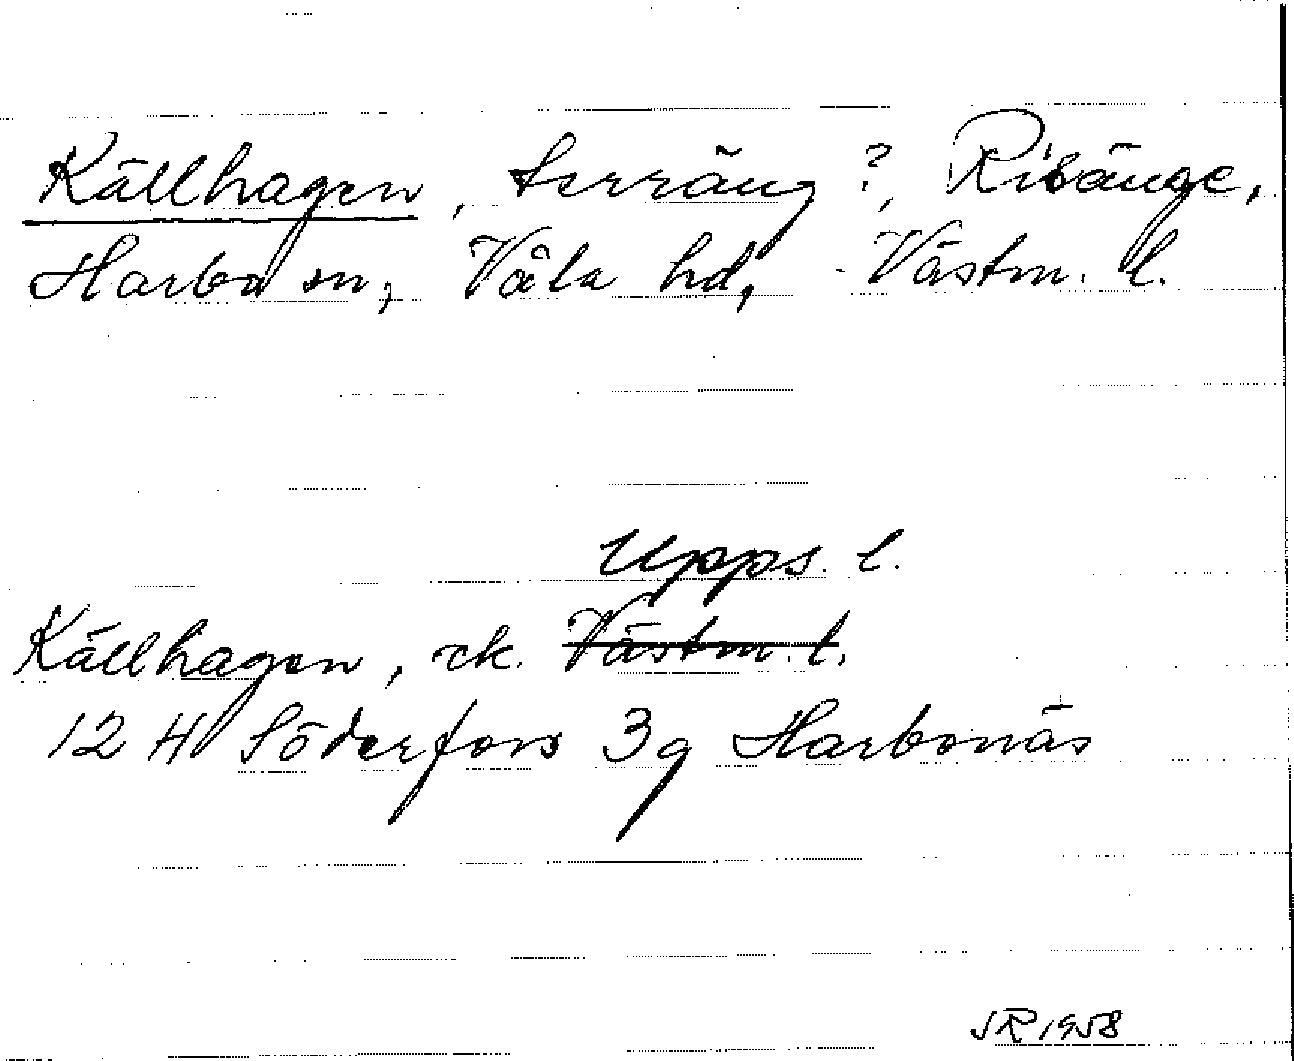 Källhagen, terräng?, Risänge,
Harbo sn, Våla hd, Västm. l.
Upps. l.
Källhagen, ek. Västm. l.
12 H Söderfors 3g Harbonäs
SR 1958